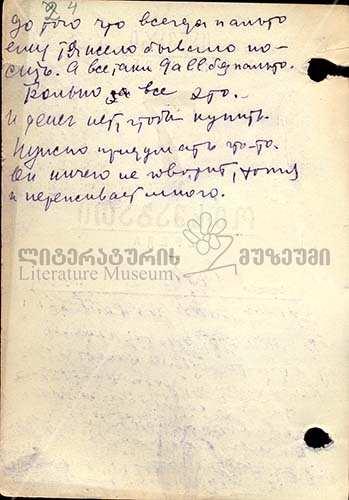 24
до того что всегда пальто
ему тяжело бывало но-
сить. А все таки дала бы пальто.
Больно за все это.
И денег нет, чтоб купить.
Нужно придумать что-то.
Он ничего не говорит, хотя
и переживает много.
ლიტერატურის მუზეუმი
Literature Museum